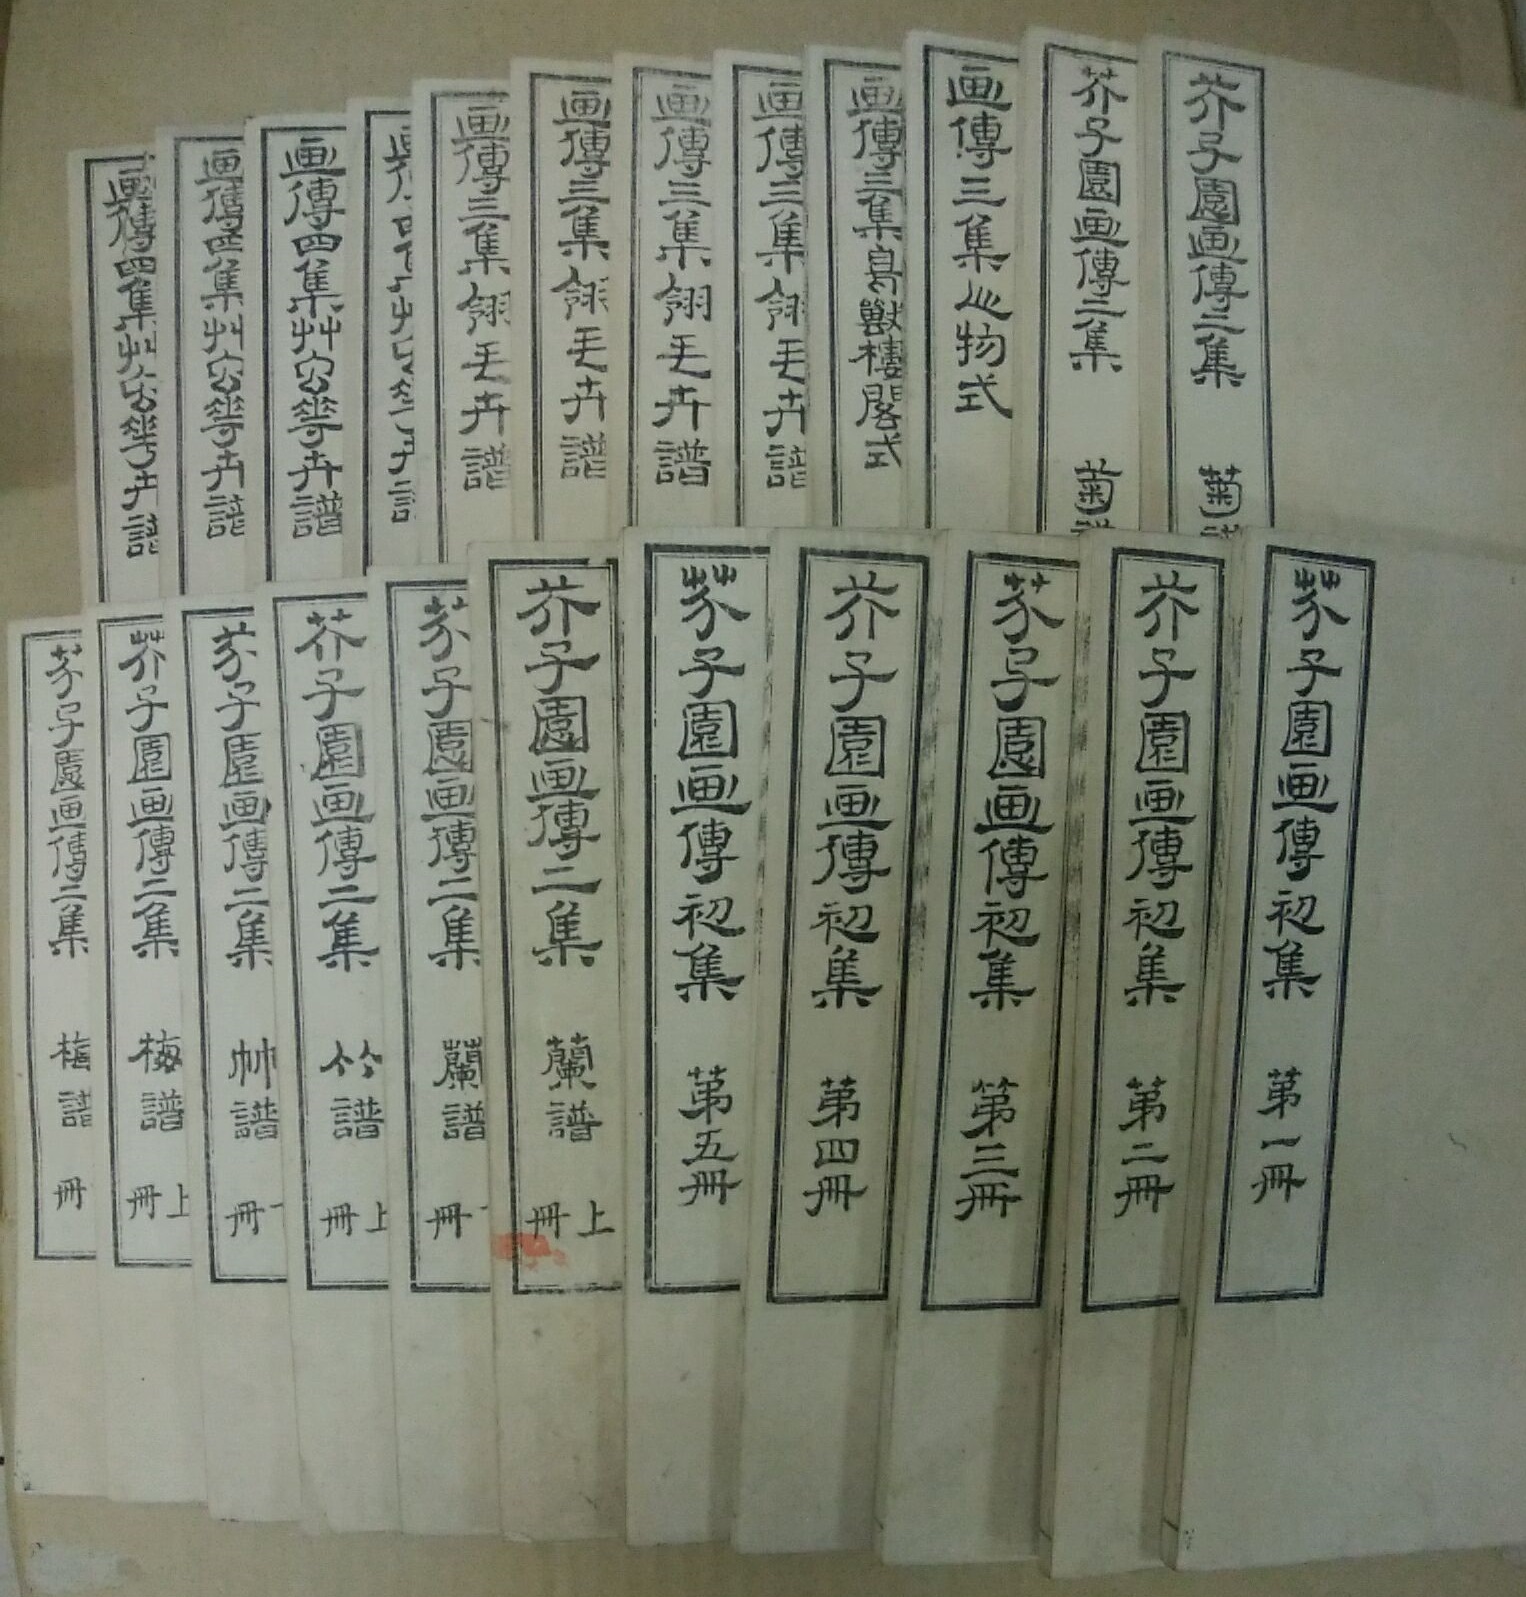 芥子園画傳初集 第一冊
芥子園画傳初集 第二冊
芥子園画傳初集 第三冊
芥子園画傳初集 第四冊
芥子園画傳初集 第五冊
芥子園画傳二集 蘭譜 上冊
芥子園画傳二集 蘭譜 冊
芥子園画傳二集 竹譜 上冊
芥子園画傳二集 竹譜 冊
芥子園画傳二集 梅譜 上冊
芥子園画傳二集 梅譜 冊
芥子園画傳二集 菊譜
芥子園画傳二集 菊譜
画傳三集 物式
画傳三集鳥獸樓閣式
画傳三集翎毛卉譜
画傳三集翎毛卉譜
画傳三集翎毛卉譜
画傳三集翎毛卉譜
画傳四集艸 華卉譜
画傳四集艸 華卉譜
画傳四集艸 華卉譜
画傳四集艸 華卉譜